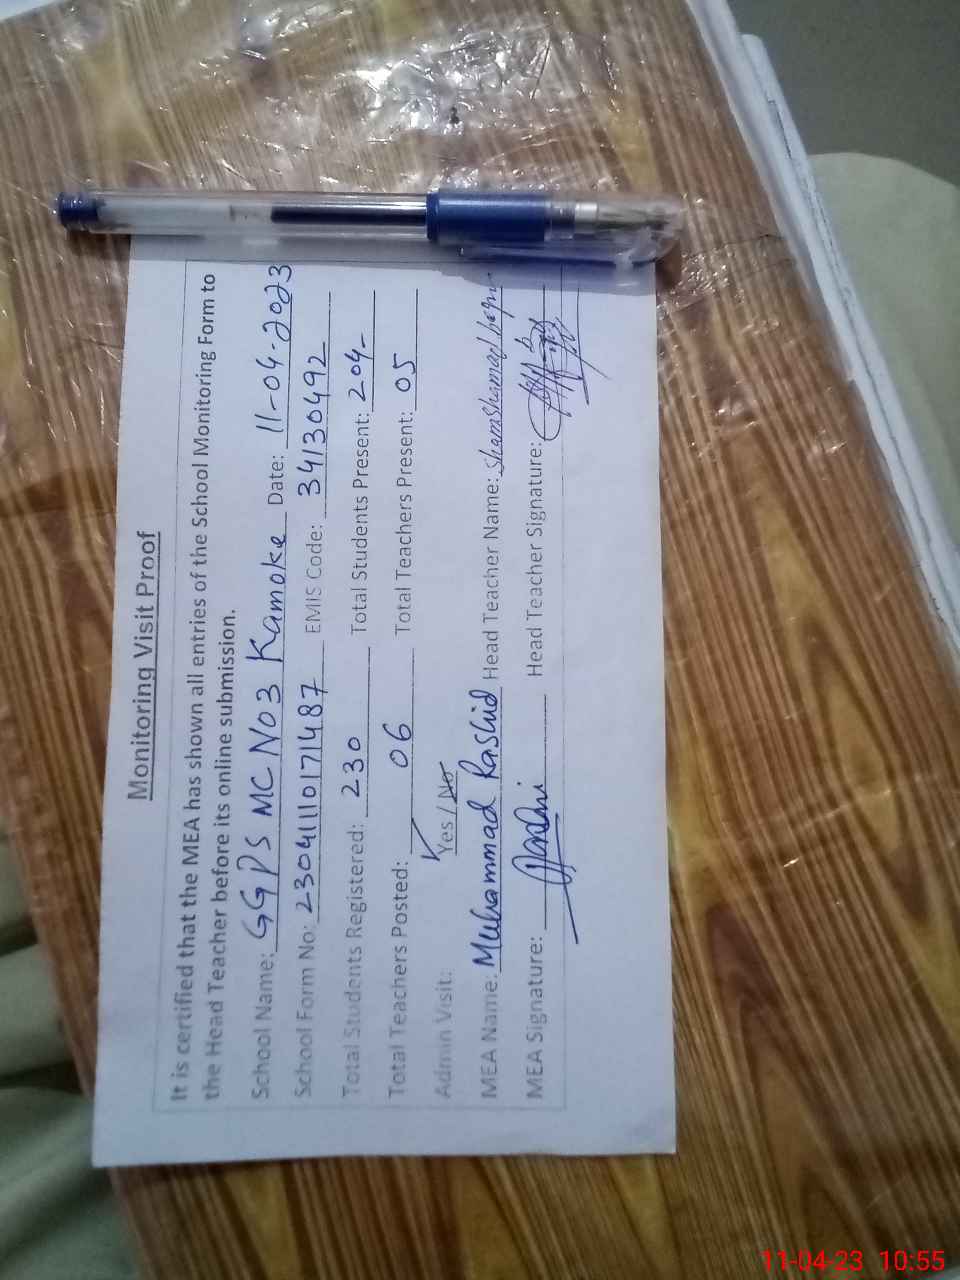 Monitoring Visit Proof
It is certified that the MEA has shown all entries of the School Monitoring Form to
the Head Teacher before its online submission.
School Name: GGPS MC No3 Kamoke Date: 11-04-2023
School Form No: 23041110171487 EMIS Code: 34130492
Total Students Registered: 230 Total Students Present: 204-
Total Teachers Posted: 06 Total Teachers Present: 05
Admin Visit: Yes / No
MEA Name: Muhammad Rashid Head Teacher Name:
MEA Signature: Head Teacher Signature:
11-04-23 10:55